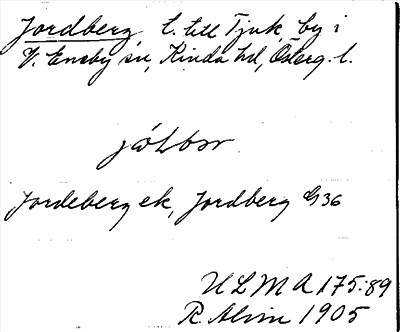 Jordberg, t. till Tjuk, by i
V. Eneby sn, Kinda hd, Österg. l.
Jordeberg ek, Jordberg G36
ULMA 175:89
R. Alvin 1905